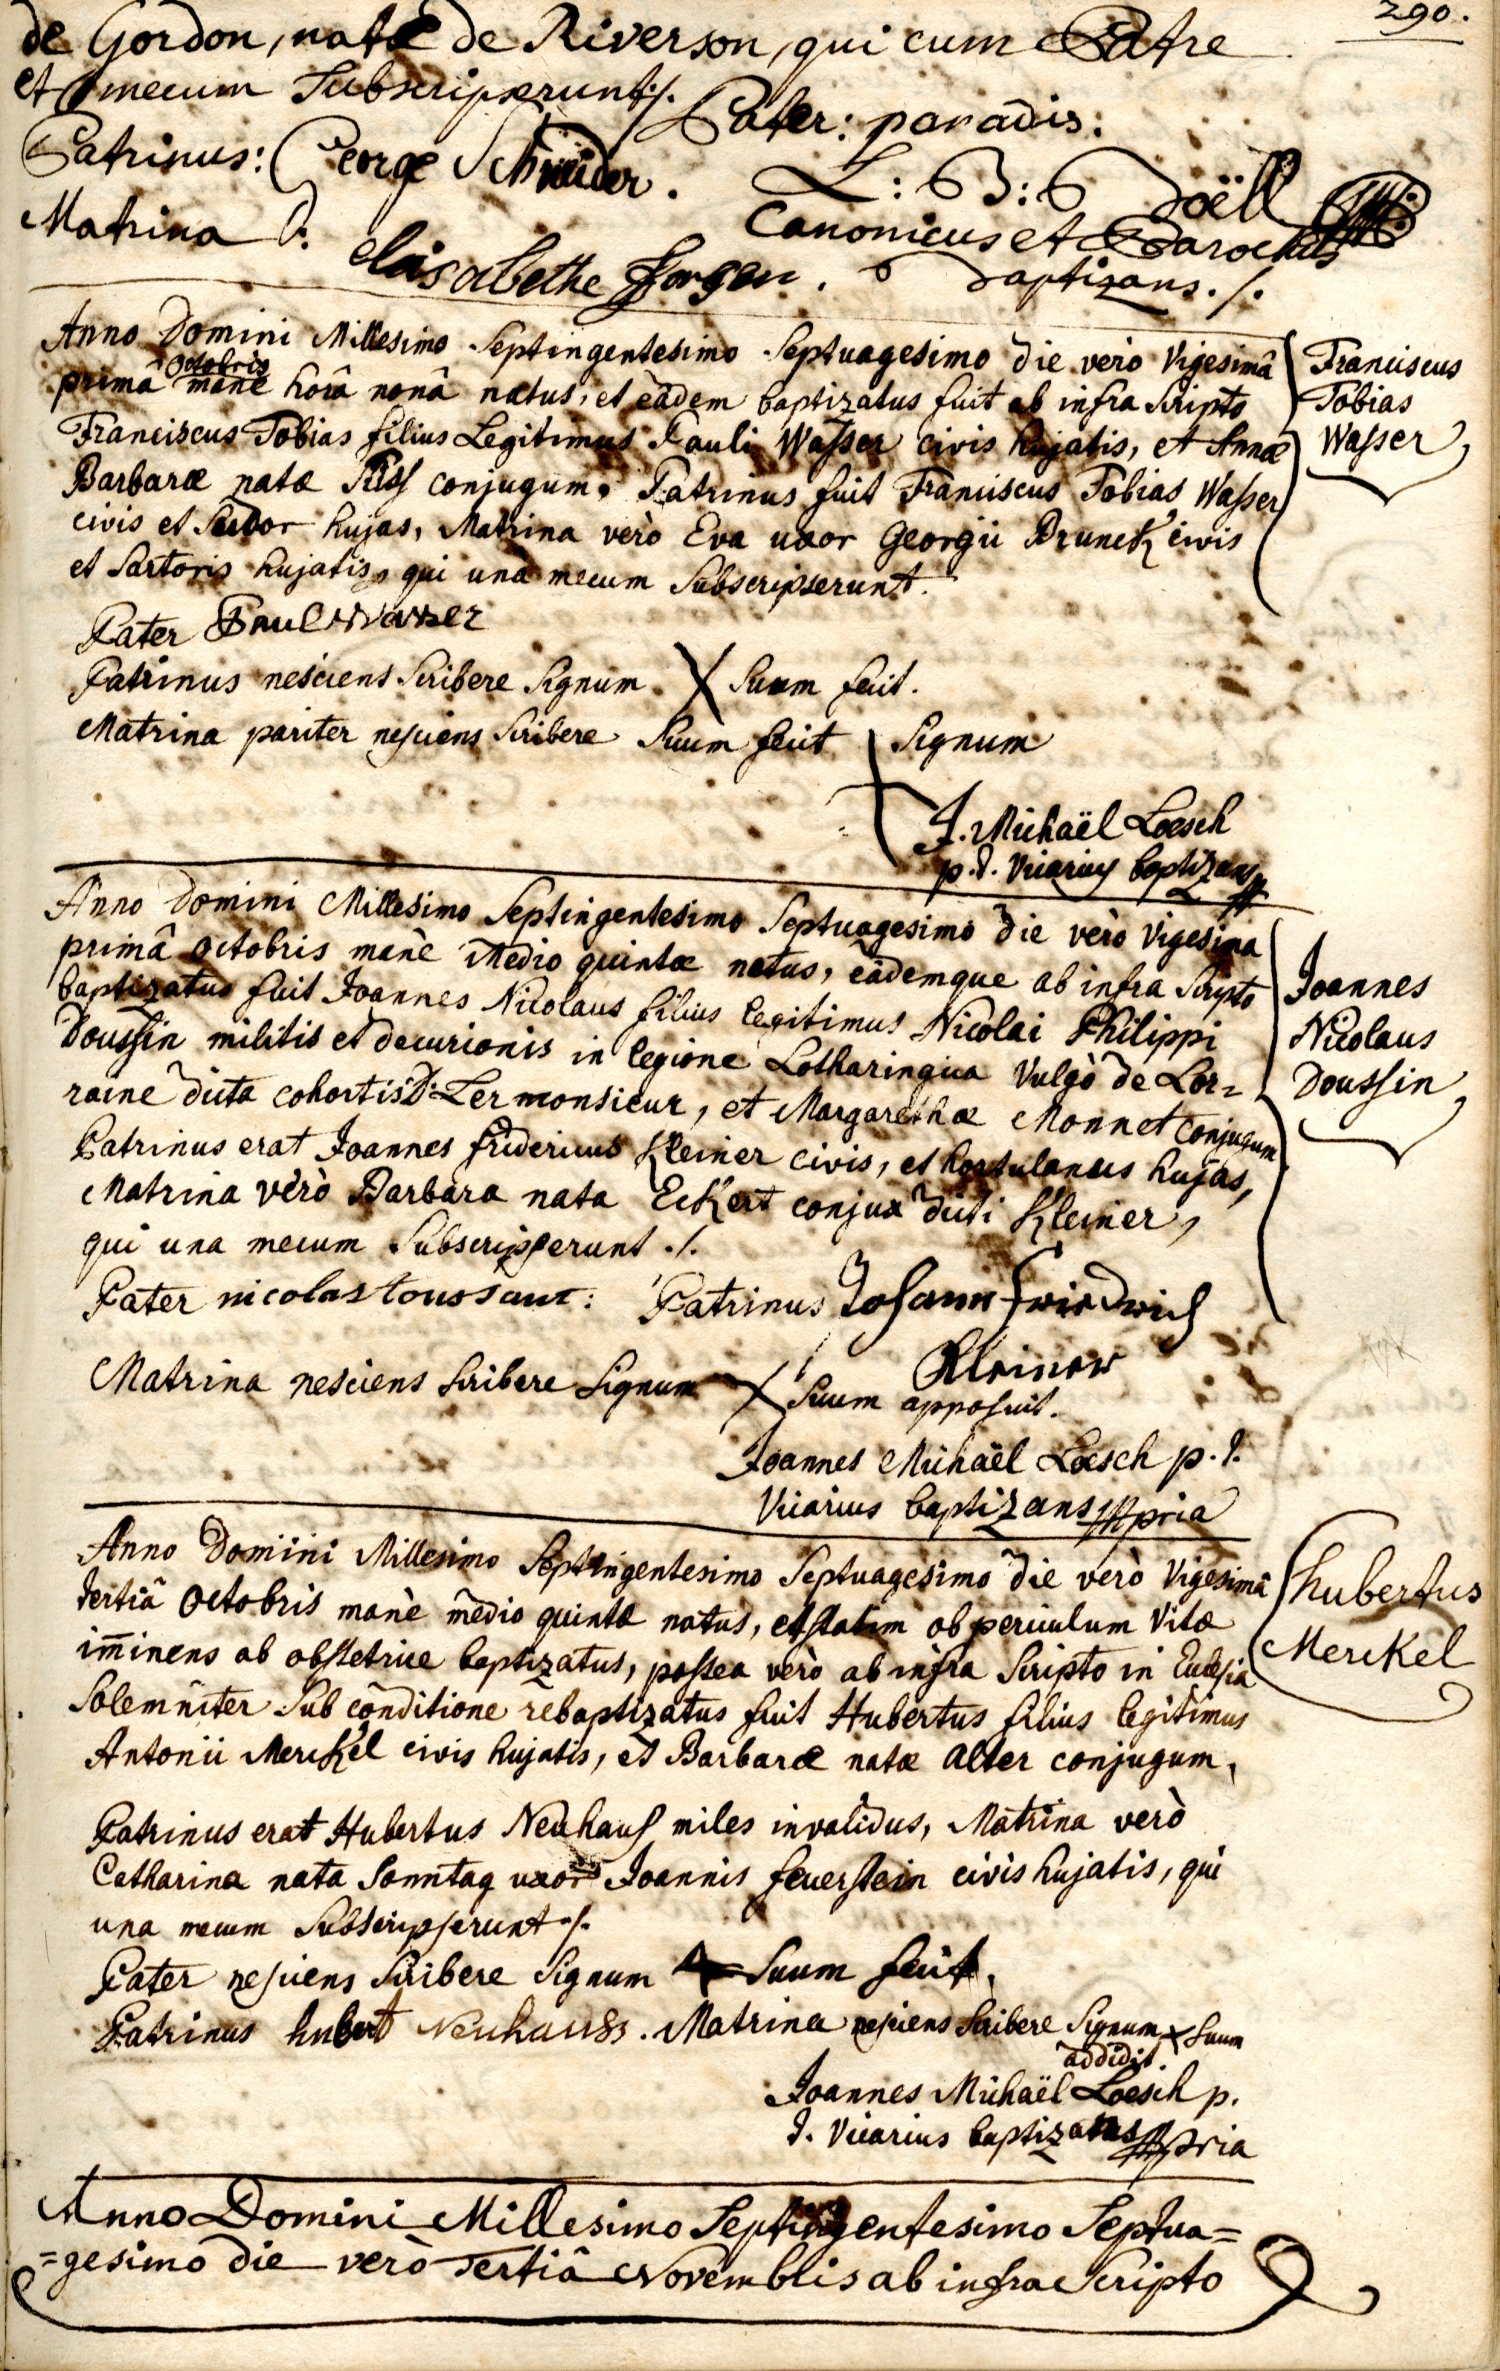 290.
de Gordon, natæ de Riverson, qui cum Patre
et mecum Subscripserunt ./.
Pater: paradis:
Patrinus: George Schneider.
L: B: Doëll
Matrina
Canonicus et Parochus
Elisabethe Jorgen.
Baptizans ./.
Anno Domini Millesimo Septingentesimo Septuagesimo die verò Vigesimâ
Octobris
primâ manè horâ nonâ natus, et eâdem baptizatus fuit ab infra Scripto
Franciscus Tobias filius Legitimus Pauli Waſser civis hujatis, et Annæ
Barbaræ natæ conjugum. Patrinus fuit Franciscus Tobias Waſser
civis et Sutor hujas, Matrina verò Eva uxor Georgii Brunck civis
et Sartoris hujatis, qui una mecum Subscripserunt.
Franciscus
Tobias
Waſser
Pater Paul Wasser
Patrinus nesciens Scribere Signum X Suum fecit.
Matrina pariter nesciens Scribere Suum fecit Signum
J. Michaël Loesch
p. t. Vicarius baptizans
Anno Domini Millesimo Septingentesimo Septuagesimo die verò Vigesima
primâ Octobris manè Medio quintæ natus, eâdemque ab infra Scripto
baptizatus fuit Joannes Nicolaus filius legitimus Nicolai Philippi
Doussin militis et decurionis in legione Lotharingica Vulgò de Lor=
raine dicta cohortis D: Lermonsieur, et Margarethæ Monnet conjugum
Patrinus erat Joannes fridericus Kleiner civis, et hortulanus hujas,
Matrina verò Barbara nata Eckert conjux dicti Kleiner,
qui una mecum Subscripserunt ./.
Joannes
Nicolaus
Doussin
Pater nicolas toussant: Patrinus Johann Friedrich
Kleiner
Matrina nesciens Scribere Signum X Suum apposuit.
Joannes Michaël Loesch p. t.
Vicarius baptizans mpria
Anno Domini Millesimo Septingentesimo Septuagesimo die verò Vigesimâ
tertiâ Octobris manè medio quintæ natus, et statim ob periculum Vitæ
im̄inens ab obstetrice baptizatus, postea verò ab infra Scripto in Ecclesia
Solemniter Sub conditione rebaptizatus fuit Hubertus filius legitimus
Antonii Merckel civis hujatis, et Barbaræ natæ Alter conjugum,
Patrinus erat Hubertus Neuhaus miles invalidus, Matrina verò
Catharina nata Sonntag uxor Joannis feuerstein civis hujatis, qui
una mecum Subscripserunt ./.
hubertus
Merckel
Pater nesciens Scribere Signum Suum fecit.
Patrinus hubert Neuhauss. Matrina nesciens Scribere Signum X Suum
addidit.
Joannes Michaël Loesch p.
t. Vicarius baptizans mpria
Anno Domini Millesimo Septingentesimo Septua=
=gesimo die verò Tertiâ Novembris ab infra Scripto